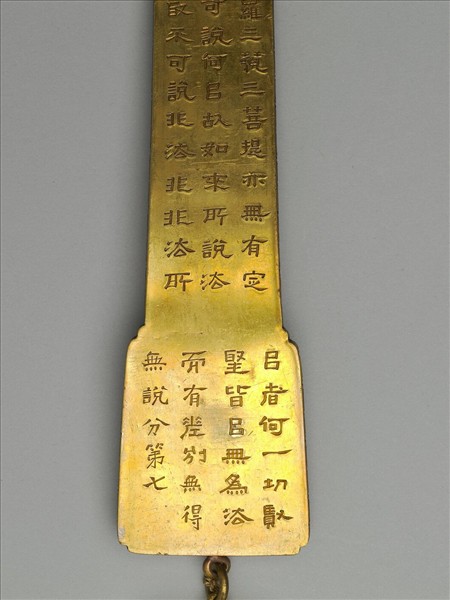 羅三藐三菩提亦無有定
可說何㠯故如來所說法
取不可說非法非非法所
㠯者何一切賢
聖皆㠯無爲法
而有差別無得
無說分第七